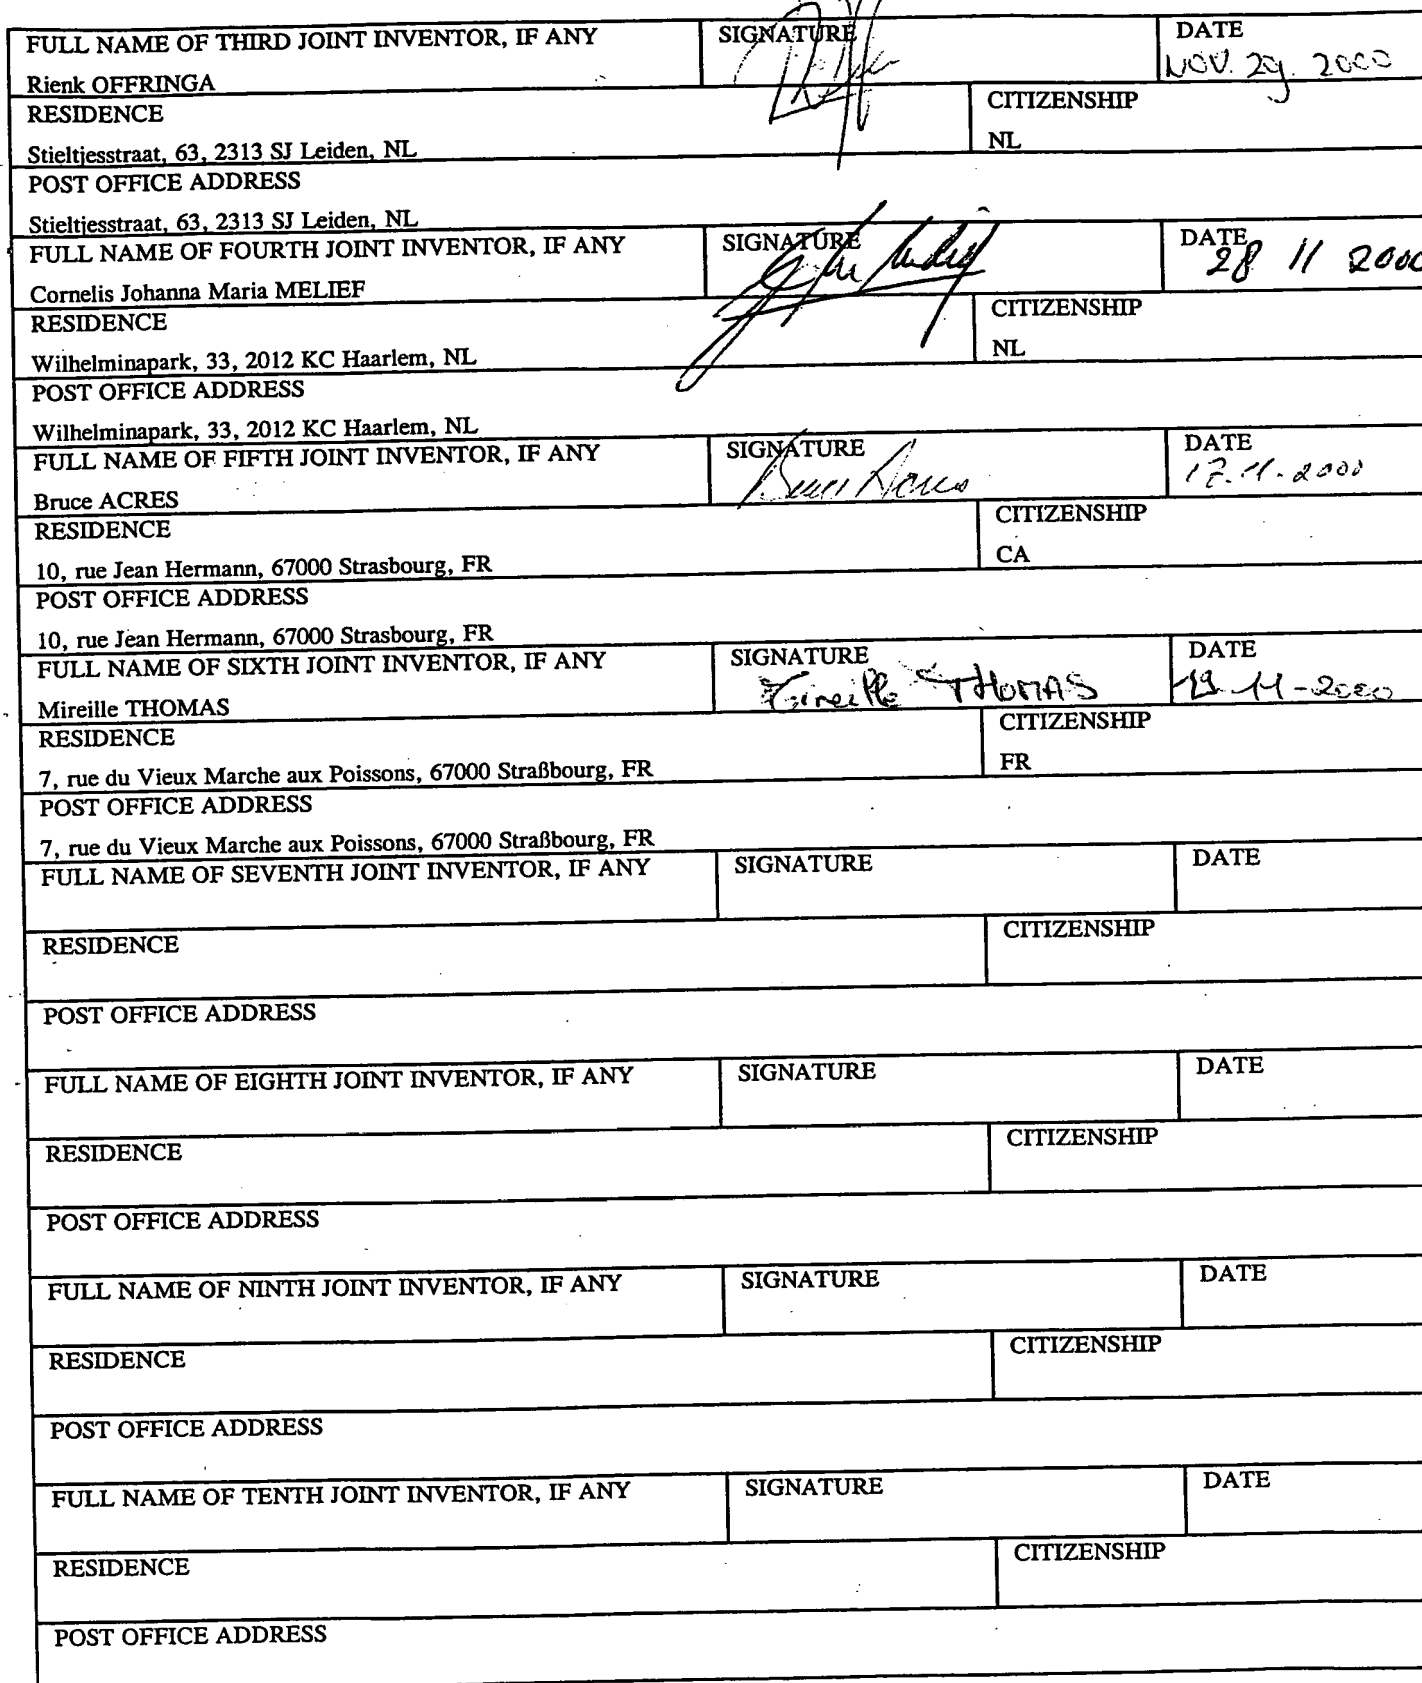 FULL NAME OF THIRD JOINT INVENTOR, IF ANY SIGNATURE DATE
Rienk OFFRINGA NOV. 29. 2000
RESIDENCE CITIZENSHIP
Stieltjesstraat, 63, 2313 SJ Leiden, NL NL
POST OFFICE ADDRESS
Stieltjesstraat, 63, 2313 SJ Leiden, NL
FULL NAME OF FOURTH JOINT INVENTOR, IF ANY SIGNATURE DATE
Cornelis Johanna Maria MELIEF 28 11 2000
RESIDENCE CITIZENSHIP
Wilhelminapark, 33, 2012 KC Haarlem, NL NL
POST OFFICE ADDRESS
Wilhelminapark, 33, 2012 KC Haarlem, NL
FULL NAME OF FIFTH JOINT INVENTOR, IF ANY SIGNATURE DATE
Bruce ACRES Bruce Acres 17.11.2000
RESIDENCE CITIZENSHIP
10, rue Jean Hermann, 67000 Strasbourg, FR CA
POST OFFICE ADDRESS
10, rue Jean Hermann, 67000 Strasbourg, FR
FULL NAME OF SIXTH JOINT INVENTOR, IF ANY SIGNATURE DATE
Mireille THOMAS Mireille THOMAS 19-11-2000
RESIDENCE CITIZENSHIP
7, rue du Vieux Marche aux Poissons, 67000 Straßbourg, FR FR
POST OFFICE ADDRESS
7, rue du Vieux Marche aux Poissons, 67000 Straßbourg, FR
FULL NAME OF SEVENTH JOINT INVENTOR, IF ANY SIGNATURE DATE
RESIDENCE CITIZENSHIP
POST OFFICE ADDRESS
FULL NAME OF EIGHTH JOINT INVENTOR, IF ANY SIGNATURE DATE
RESIDENCE CITIZENSHIP
POST OFFICE ADDRESS
FULL NAME OF NINTH JOINT INVENTOR, IF ANY SIGNATURE DATE
RESIDENCE CITIZENSHIP
POST OFFICE ADDRESS
FULL NAME OF TENTH JOINT INVENTOR, IF ANY SIGNATURE DATE
RESIDENCE CITIZENSHIP
POST OFFICE ADDRESS